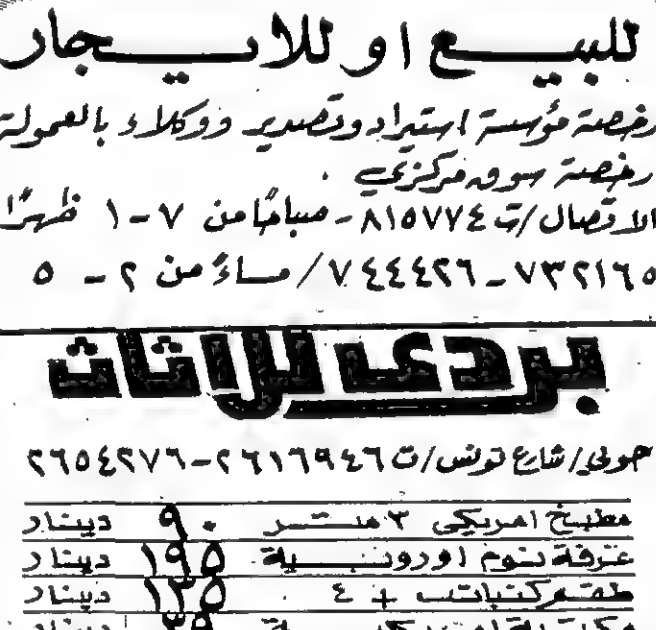 للبيع او للايجار
رخصة مؤسسة استيراد وتصدير ووكلاء بالعمولة
رخصة سوق مركزي .
الاتصال/ت ٨١٥٧٧٤ - صباحًا من ٧ - ١ ظهرًا
٧٣٢١٦٥ - ٧٤٤٤٢٦ / مساءً من ٢ - ٥
بردى للاثاث
حولي/شارع تونس/ت ٢٦١٦٩٤٦ - ٢٦٥٤٢٧٦
مطبخ امريكي ٣ متر ٩٠ دينار
غرفة نوم اوروبية ١٩٥ دينار
طقم كنبات + ٤ ١٣٥ دينار